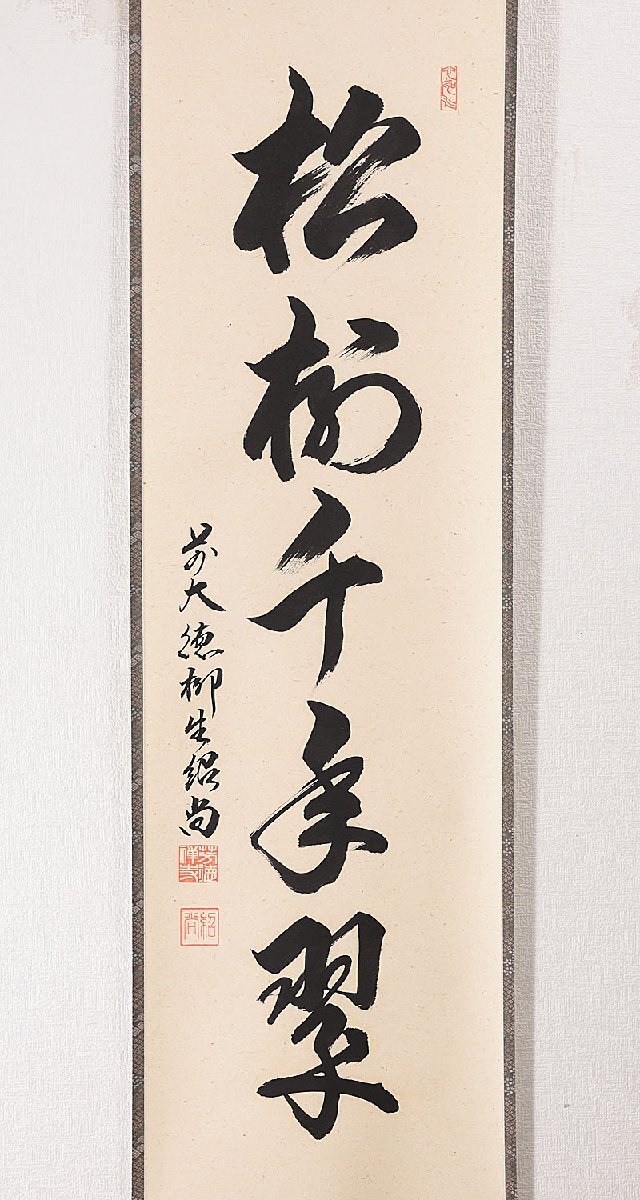 松樹千年翠
前大徳柳生紹尚
紹尚